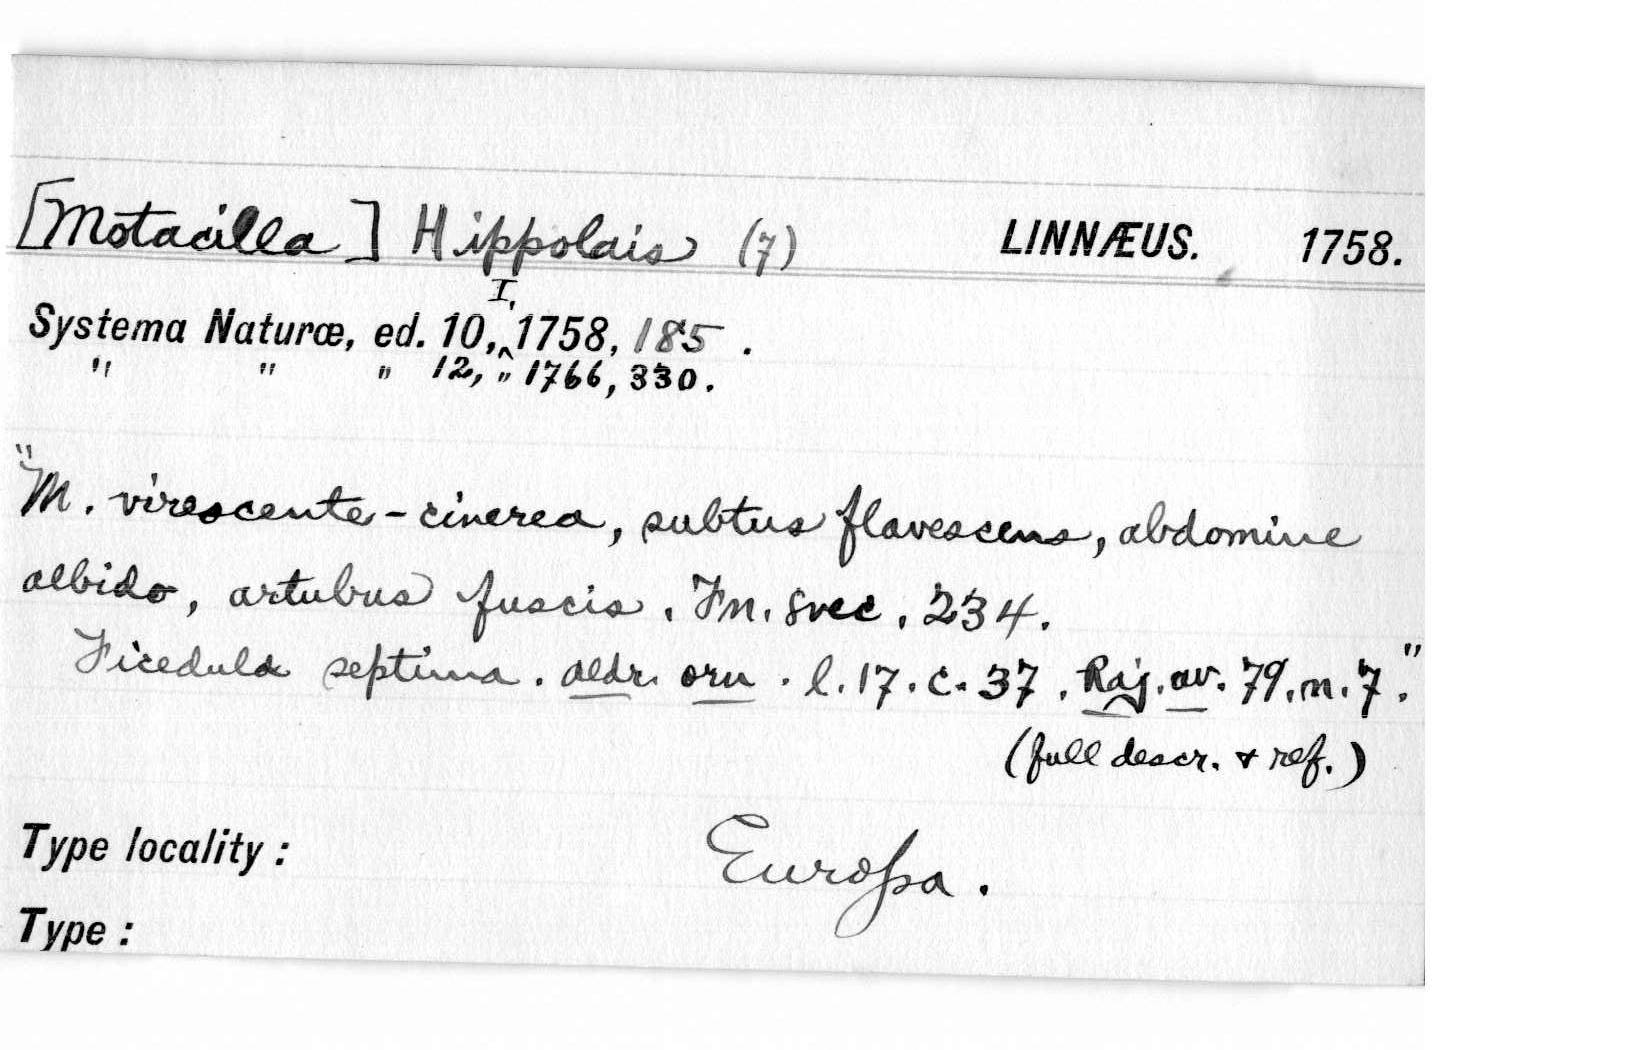 [Motacilla] Hippolais (7) LINNÆUS. 1758.
Systema Naturæ, ed. 10,^I. 1758, 185.
" " " 12, " 1766, 330.
"M. virescente-cinerea, subtus flavescens, abdomine
albido, artubus fuscis. Fn. svec. 234.
Ficedula septima. aldr. orn. l.17. c. 37. Raj. av. 79. n. 7."
(full descr. & ref.)
Type locality: Europa.
Type: